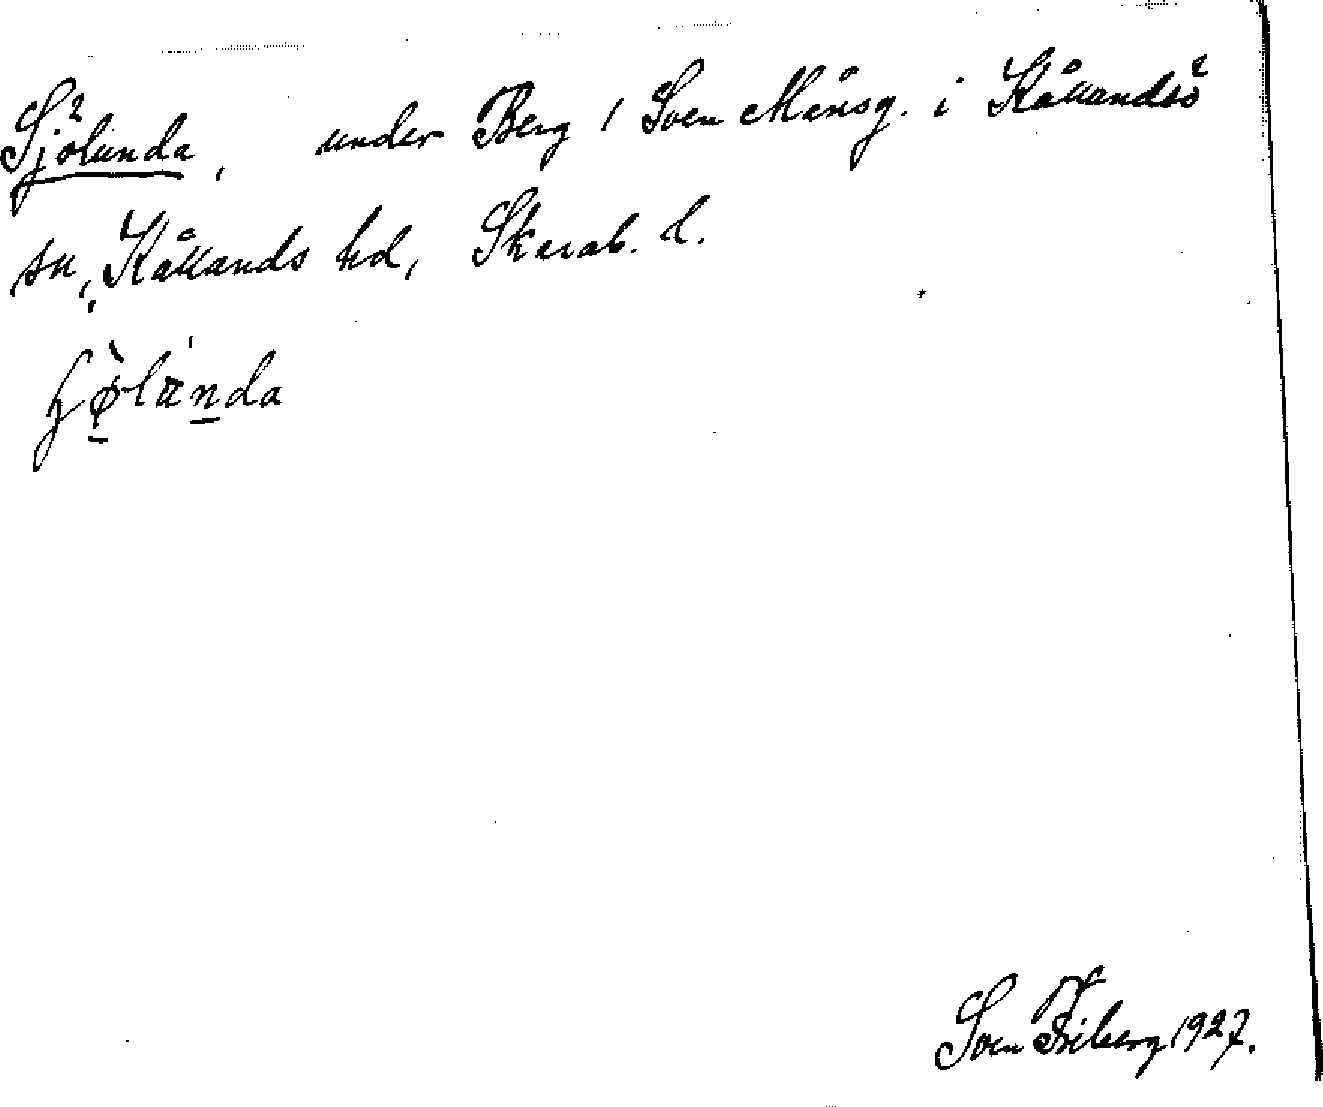 Sjölunda, under Berg 1 Sven Månsg. i Kållandsö
sn, Kållands hd, Skarab. l.
ʃø̀lúnda
Sven Friberg 1927.